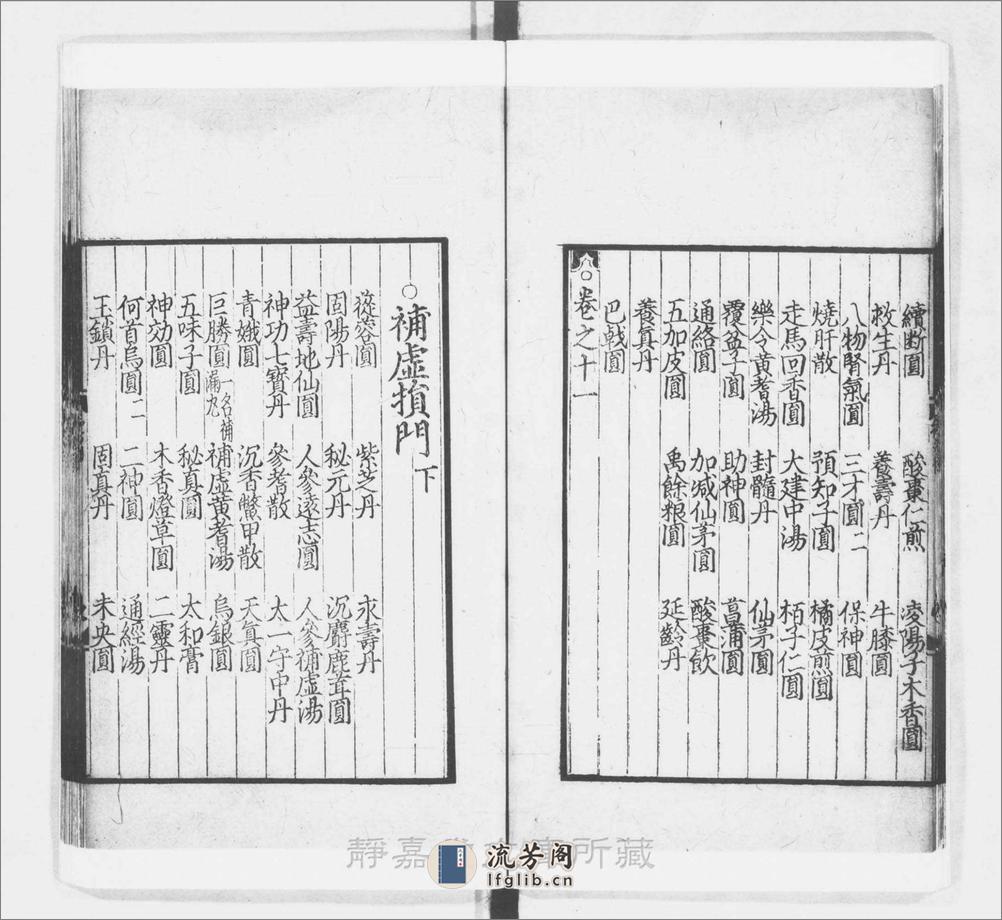 續断圓 酸棗仁煎 凌陽子木香圓
救生丹 養壽丹 牛膝圓
八物腎氣圓 三才圓二 保神圓
燒肝散 預知子圓 橘皮煎圓
走馬回香圓 大建中湯 栢子仁圓
樂令黃耆湯 封髓丹 仙茅圓
覆盆子圓 助神圓 菖蒲圓
通絡圓 加减仙茅圓 酸棗飲
五加皮圓 禹餘粮圓 延齡丹
養真丹
巴戟圓
卷之十一
○補虛損門下
蓯蓉圓 紫芝丹 永壽丹
固陽丹 秘元丹 沉麝鹿茸圓
益壽地仙圓 人參遠志圓 人參補虛湯
神功七寶丹 參耆散 太一守中丹
青娥圓 沉香鱉甲散 天真圓
巨勝圓一名補漏丸 補虛黃耆湯 烏銀圓
五味子圓 秘真圓 太和膏
神効圓 木香燈草圓 二靈丹
何首烏圓二 二神圓 通經湯
玉鎖丹 固真丹 未央圓
靜嘉堂文庫所藏
流芳阁
lfglib.cn